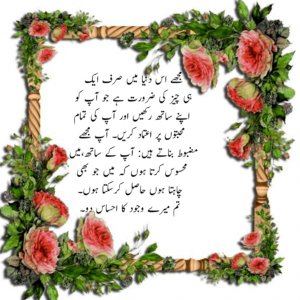 مجھے اس دنیا میں صرف ایک
ہی چیز کی ضرورت ہے جو آپ کو
اپنے ساتھ رکھیں اور آپ کی تمام
محبتوں پر اعتماد کریں۔ آپ مجھے
مضبوط بناتے ہیں: آپ کے ساتھ، میں
محسوس کرتا ہوں کہ میں جو بھی
چاہتا ہوں حاصل کرسکتا ہوں۔
تم میرے وجود کا احساس دو۔